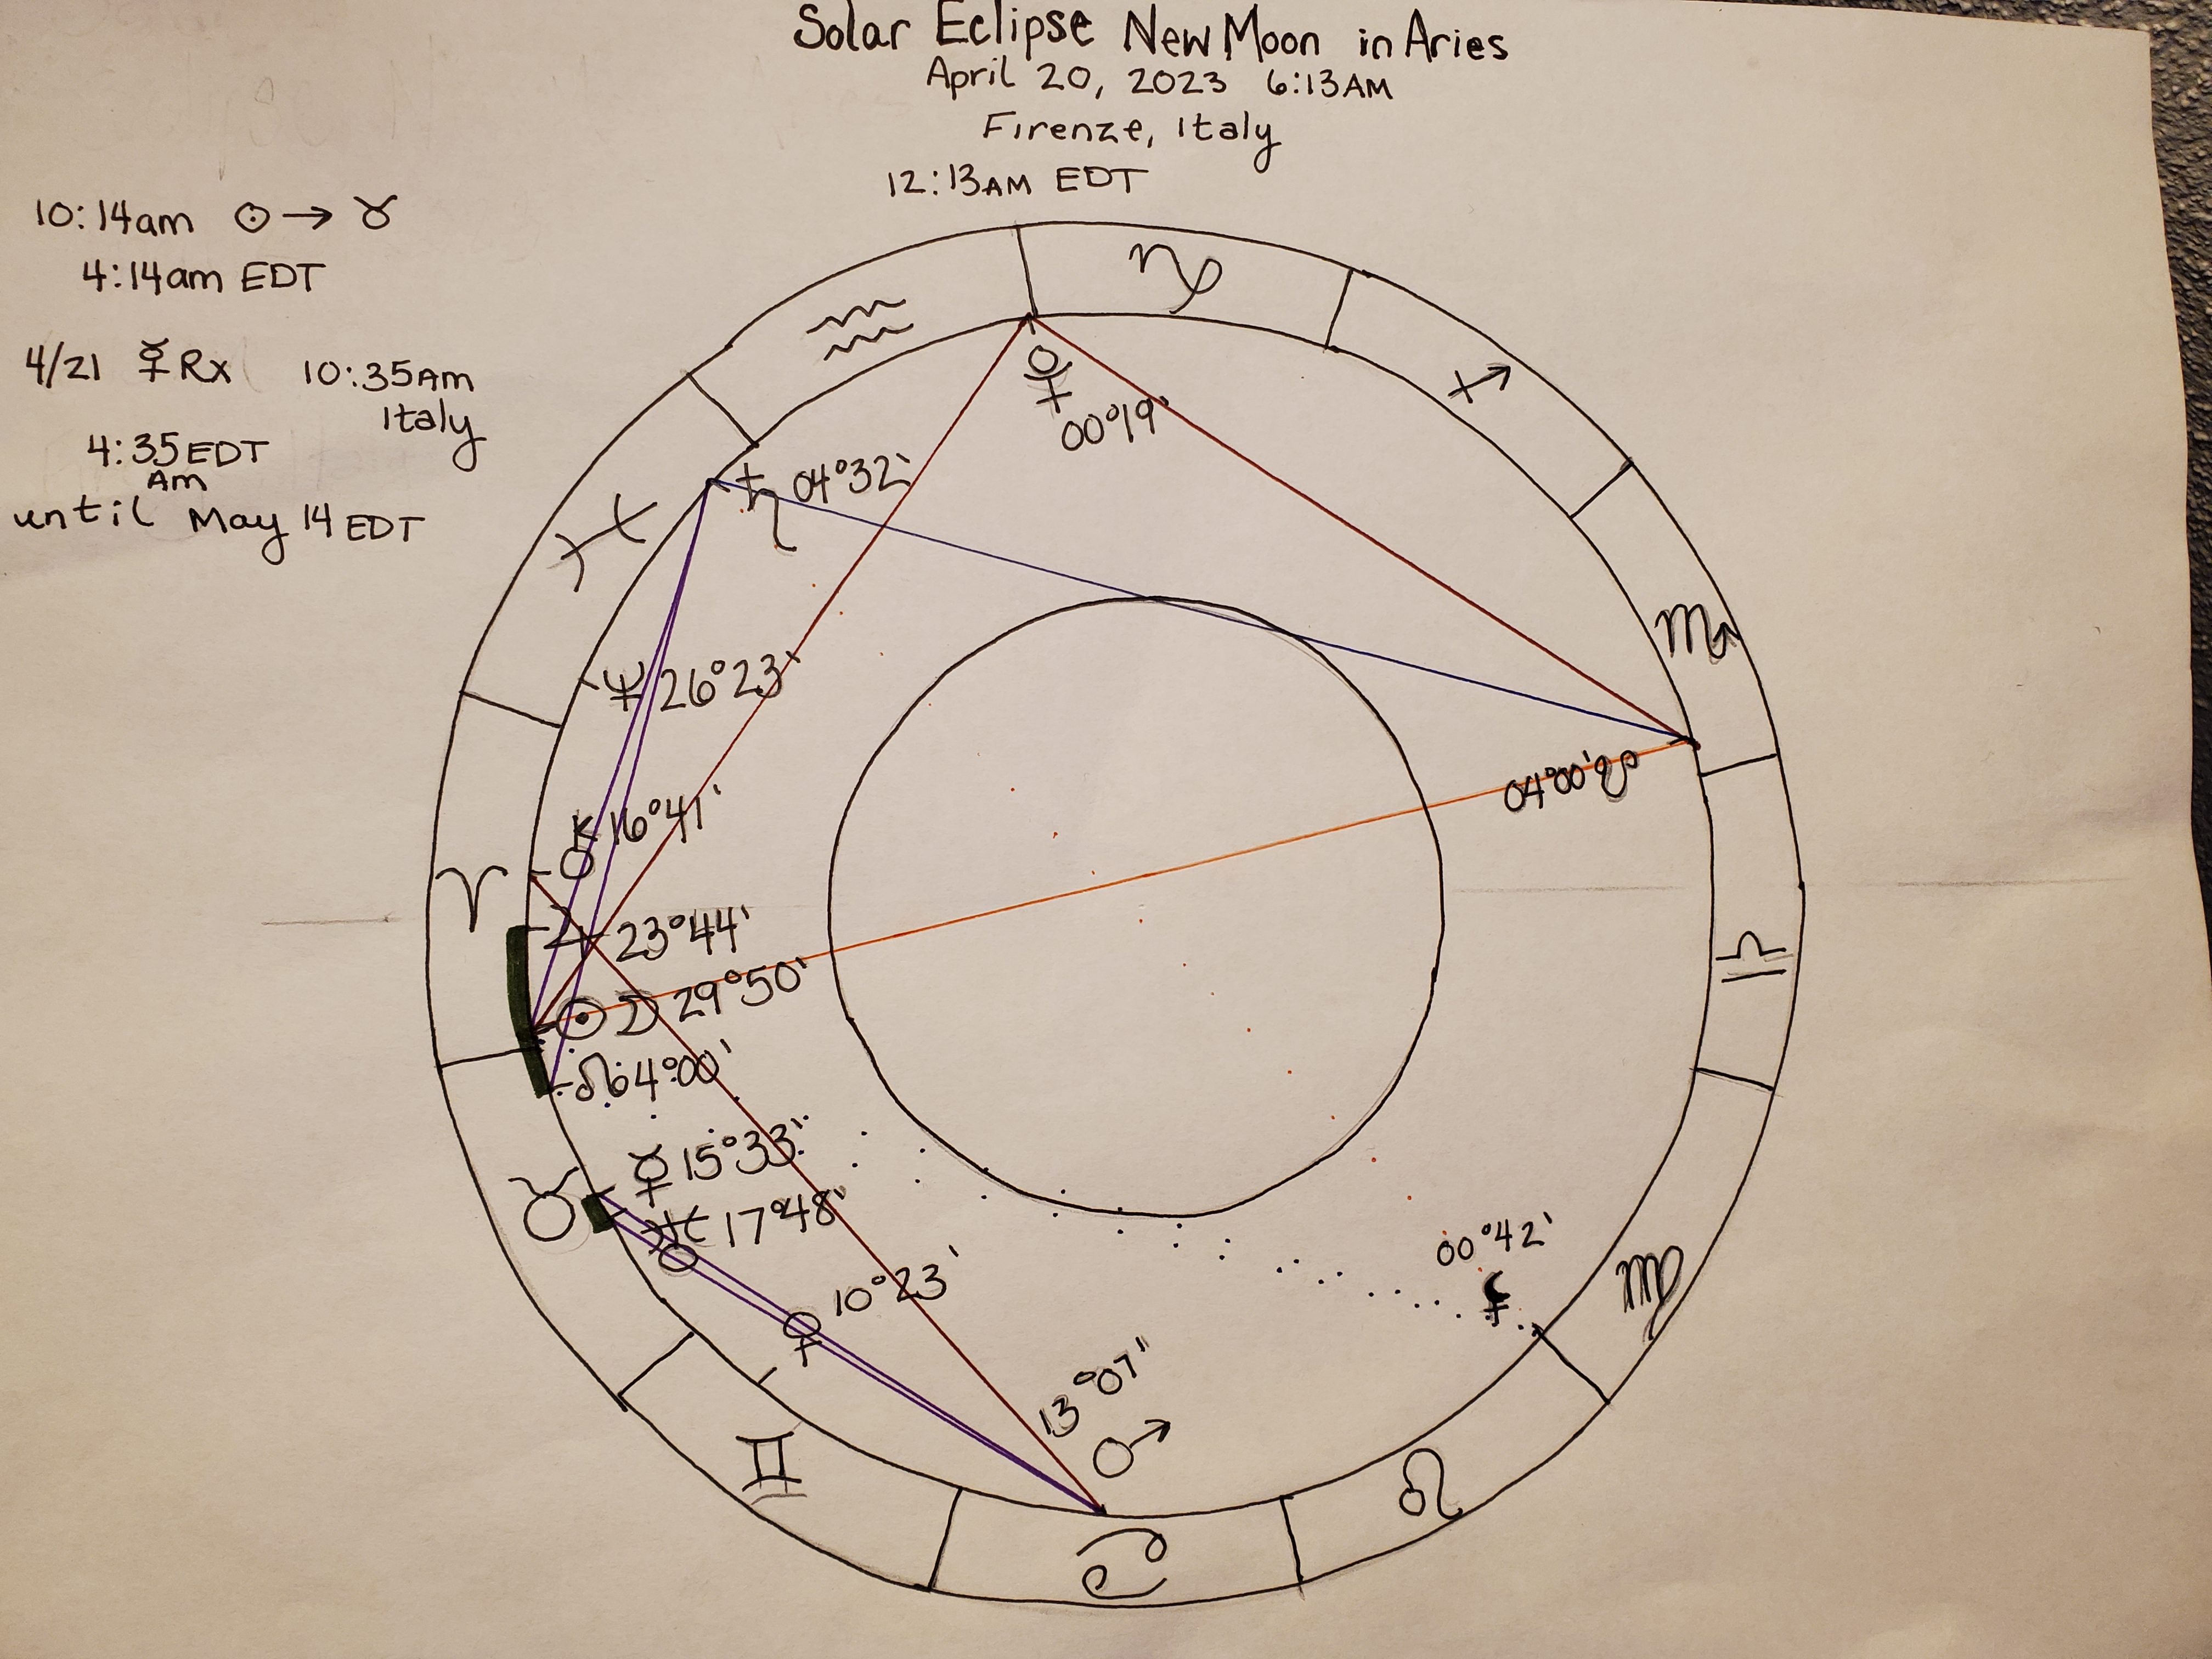 Solar Eclipse New Moon in Aries
April 20, 2023 6:13AM
Firenze, Italy
12:13AM EDT
10:14am ☉→ ♉
4:14am EDT
4/21 ☿ Rx 10:35AM
Italy
4:35 EDT
AM
until May 14 EDT
♒ ♑ ♐
♇ 00°19'
♓ ♄ 04°32'
♆ 26°23'
♏
04°00' ☋
♈ ⚷ 16°41'
♃ 23°44'
☉☽ 29°50'
♎
☊ 04°00'
♉ ☿ 15°33'
♅ 17°48'
♀ 10°23'
00°42' ⚸
♍
13°07'
♂
♊ ♋ ♌